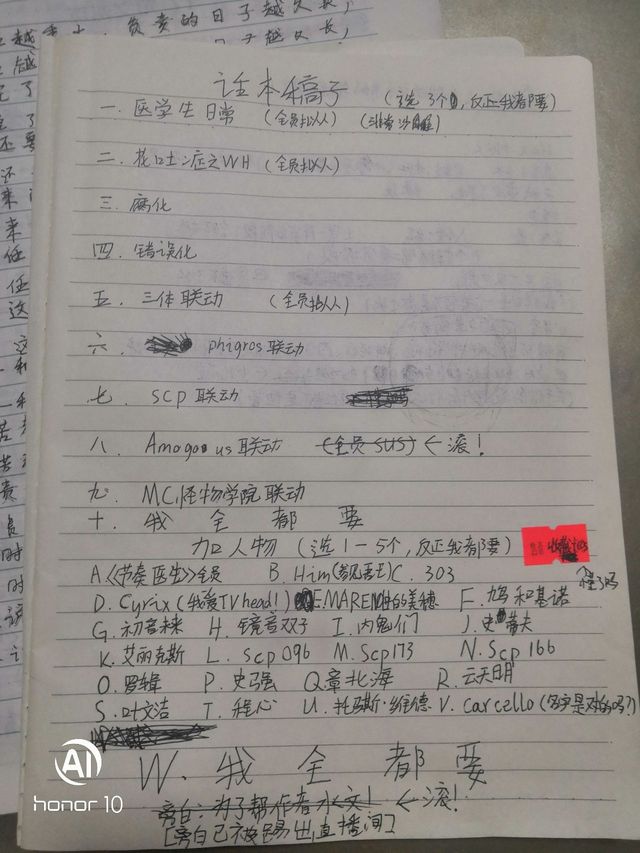 话本稿子 (选3个, 反正我都要)
一. 医学生日常 (全员拟人) (非常沙雕)
二. 花吐症之WH (全员拟人)
三. 腐化
四. 错误化
五. 三体联动 (全员拟人)
六. phigros联动
七. SCP联动
八. Amogous联动 (全员SUS) ← 滚!
九. MC怪物学院联动
十. 我 全 都 要
加人物 (选1-5个, 反正我都要)
A《节奏医生》全员 B. Him C. 303
D. Cyrix (我爱TV head!) F. 鸠和基诺
G. 初音未来 H. 镜音双子 I. 内鬼们 J. 史蒂夫
K. 艾丽克斯 L. SCP 096 M. SCP 173 N. SCP 166
O. 罗辑 P. 史强 Q. 章北海 R. 云天明
S. 叶文洁 T. 程心 U. 托马斯·维德 V. Carcello (名字是对的吗?)
W. 我 全 都 要
旁白: 为了帮作者水文! ← 滚!
[旁白已被踢出直播间]
AI
honor 10